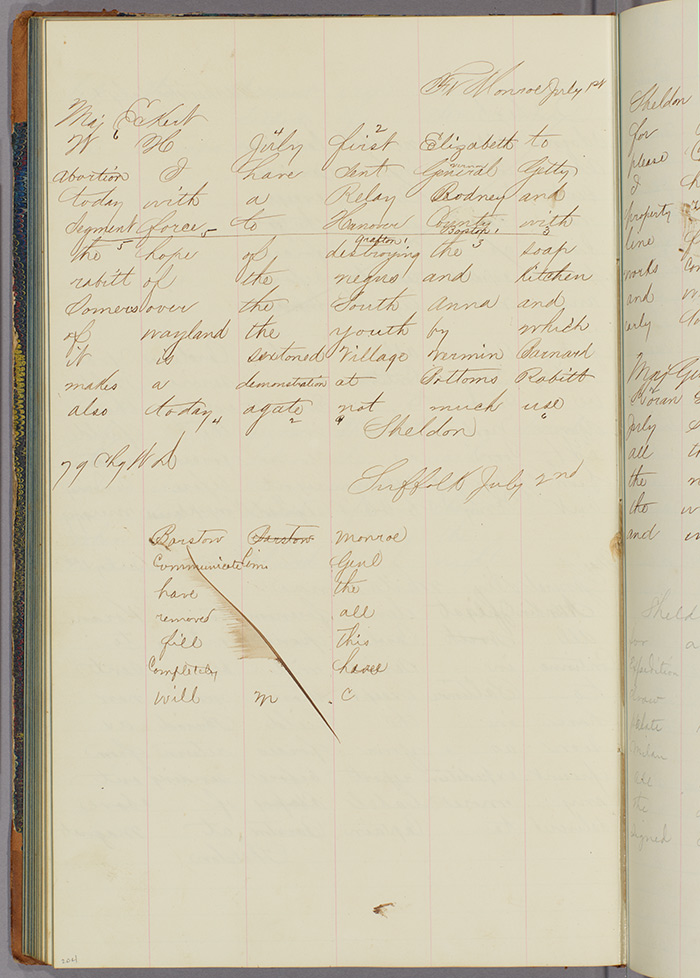 Ft Monroe July 1st
Maj Eckert
W H July first Elizabeth to
6 11 2
abortion I have sent General Getty
today with a Relay Rodney and
Segment force to Hanover County with
5
the hope of destroying the soap
5 grafton 3 3
rabitt of the negus and Kitchen
Somers over the South Anna and
of wayland the youth by which
it is sextoned Village Vermin Barnard
makes a demonstration at Bottoms Rabitt
also today agate not much use
4 2 9 6
Sheldon
79 Chg W D
Suffolk July 2nd
Barstow Barstow monroe
Communicate Lime Genl
have the
removed all
fill this
Completely have
will m c
Sheldon
for
please
I
property
line
works
and
Maj
July
all
the
the
and
Sheld
for a
Expedition
the
signed
204